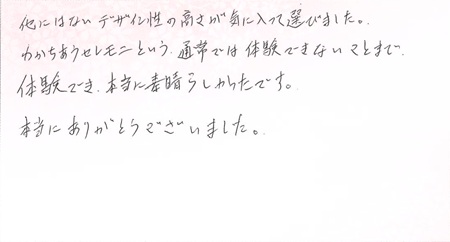 他にはないデザイン性の高さが気に入って選びました。
わかちあうセレモニという、通常では体験できないことまで、
体験でき、本当に素晴らしかったです。
本当にありがとうございました。